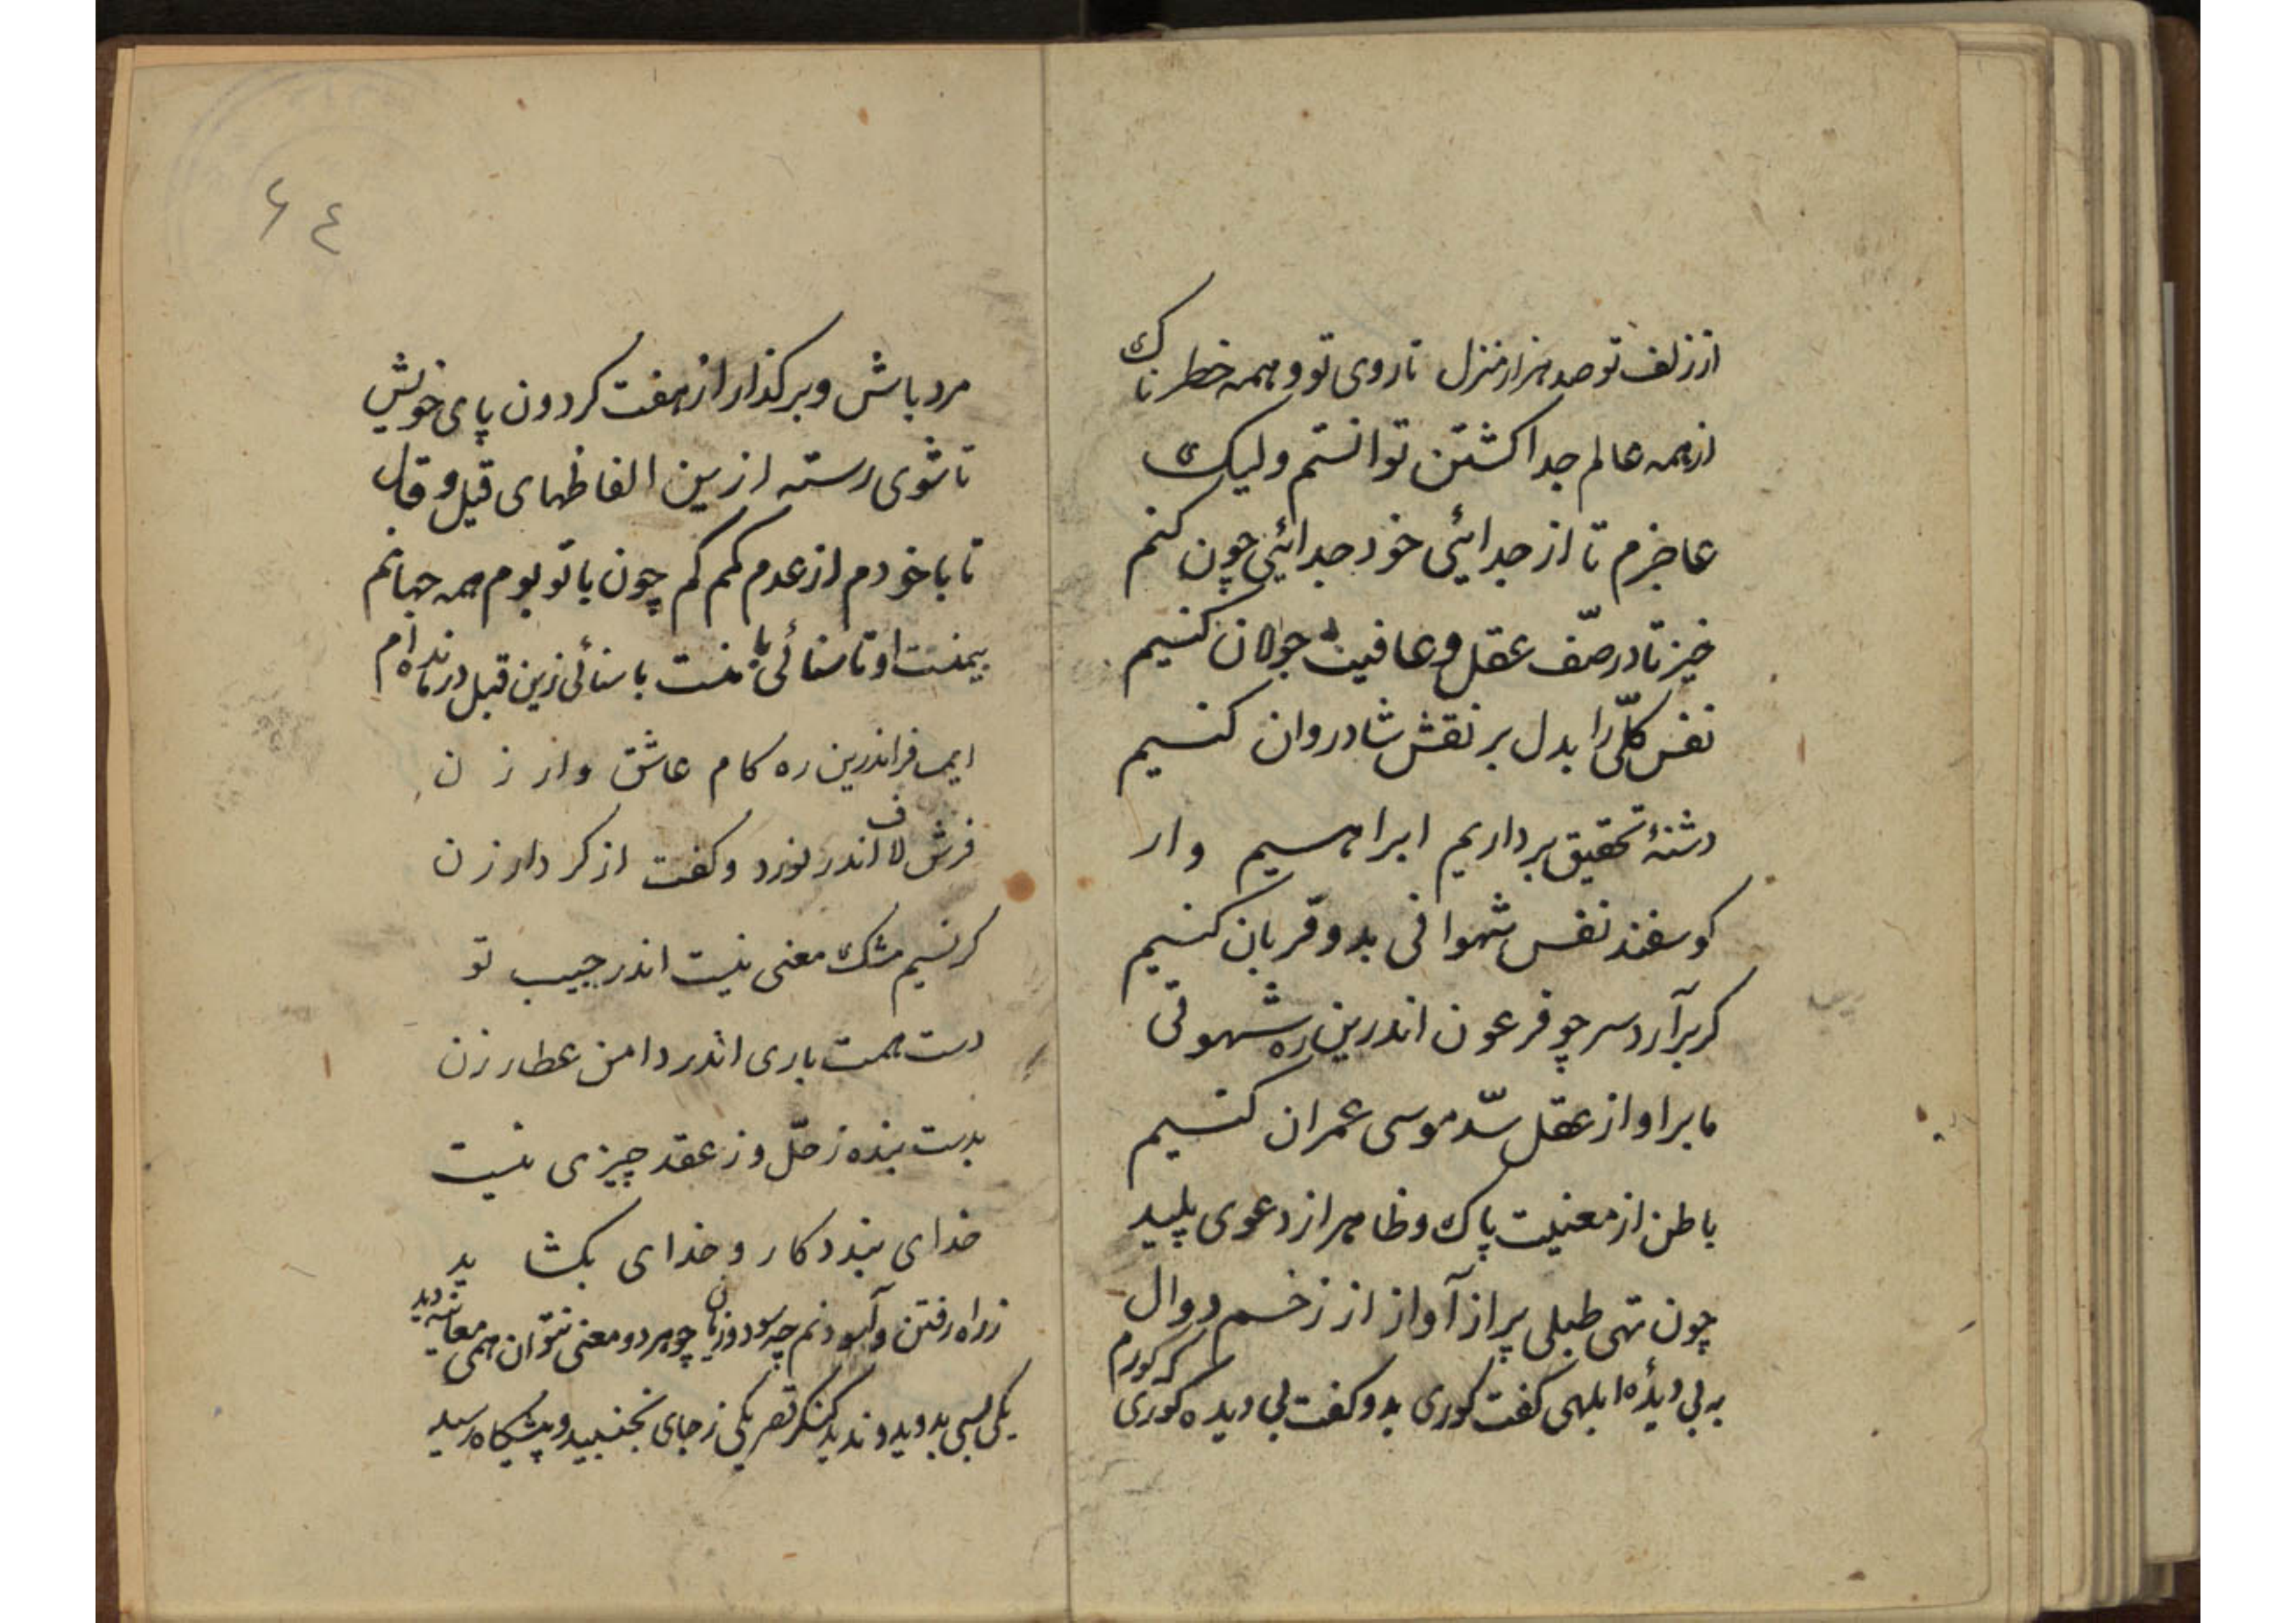 از زلف تو صد هزار منزل تا روی تو و همه خطرناک
از همه عالم جدا کشتن توانستم ولیک
عاجزم تا از جدائی خود جدائی چون کنم
خیز تا در صفّ عقل و عافیت جولان کنیم
نفس کلّی را بدل بر نقش شادروان کنیم
دشنهٔ تحقیق برداریم ابراهیم وار
کوسفند نفس شهوانی بدو قربان کنیم
کر برآرد سر چو فرعون اندرین ره شهوتی
ما برا و از عقل سدّ موسی عمران کنیم
باطن از معنیت پاک و ظاهر از دعوی پلید
چون تهی طبلی پر از آواز از زخم دوال
به بی دیدهٔ ابلهی کفت کوری بدو کفت بی دیده کوری که کورم
٦٤
مرد باش و برکذار از هفت کردون پای خویش
تا شوی رسته ازین الفاظهای قیل و قال
تا با خودم از عدم کمم کم چون با تو بوم همه جهانم
بیمنست او تا سنائی با منست با سنائی زین قبل درمانده ام
فرا اندرین ره کام عاشق وار زن
فرش لاف اندر نورد و کفت از کردار زن
کر نسیم مشک معنی نیست اندر جیب تو
دست همت باری اندر دامن عطار زن
بدست بنده ز حلّ و ز عقد چیزی نیست
خدای بندد کار و خدای بکشا ید
ز راه رفتن و آسودنم چه سود و زیان چو هر دو معنی نتوان همی معاینه دید
یکی بسی بدوید و ندید کنکر قصر یکی ز جای نجنبید و پیشکاه رسید